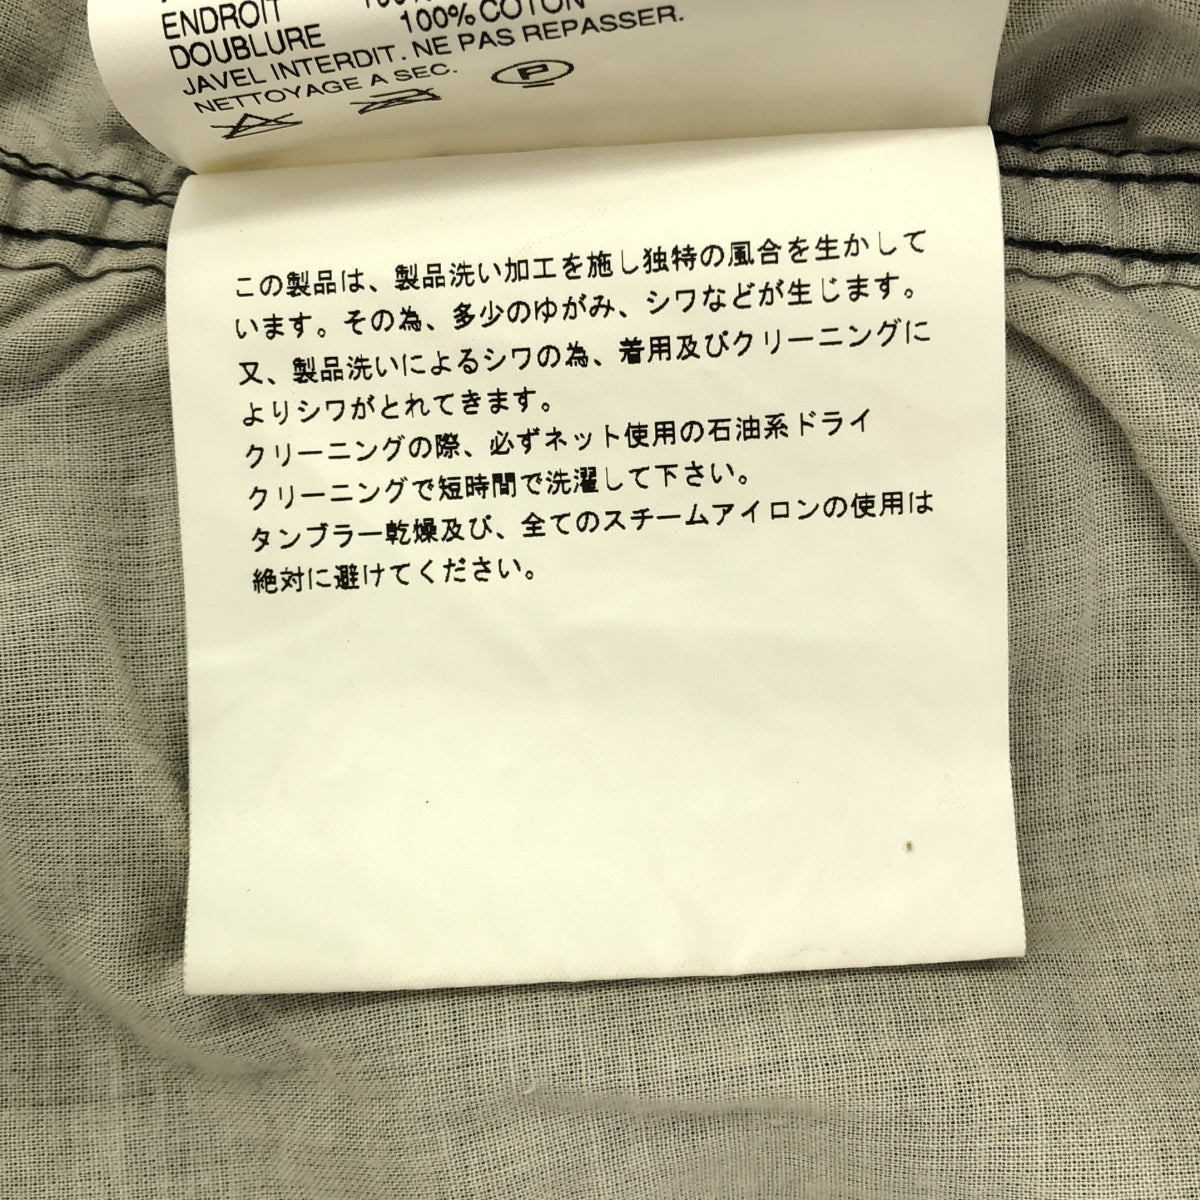 ENDROIT 100%
DOUBLURE 100% COTON
JAVEL INTERDIT. NE PAS REPASSER.
NETTOYAGE A SEC.
P
この製品は、製品洗い加工を施し独特の風合を生かして
います。その為、多少のゆがみ、シワなどが生じます。
又、製品洗いによるシワの為、着用及びクリーニングに
よりシワがとれてきます。
クリーニングの際、必ずネット使用の石油系ドライ
クリーニングで短時間で洗濯して下さい。
タンブラー乾燥及び、全てのスチームアイロンの使用は
絶対に避けてください。